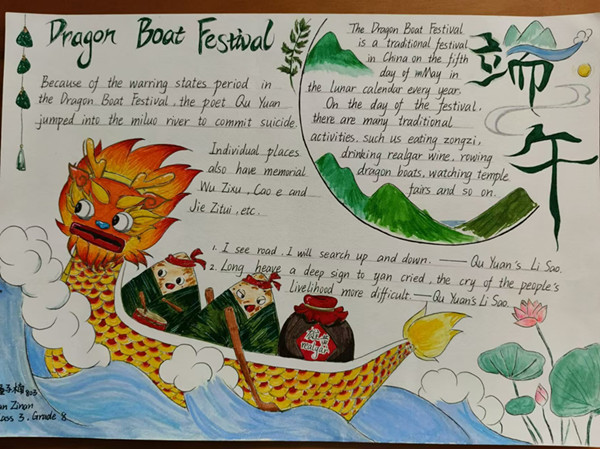 Dragon Boat Festival
Because of the warring states period in
the Dragon Boat Festival, the poet Qu Yuan
jumped into the miluo river to commit suicide.
Individual places
also have memorial
Wu Zixu, Cao e and
Jie Zitui, etc.
The Dragon Boat Festival
is a traditional festival
in China on the fifth
day of mMay in
the lunar calendar every year.
On the day of the festival,
there are many traditional
activities, such us eating zongzi,
drinking realgar wine, rowing
dragon boats, watching temple
fairs and so on.
端午
1. I see road, I will search up and down. —— Qu Yuan's Li Sao.
2. Long heave a deep sign to yan cried, the cry of the people's
Livelihood more difficult. —— Qu Yuan's Li Sao.
realgar
803
Zinan
3. Grade 8